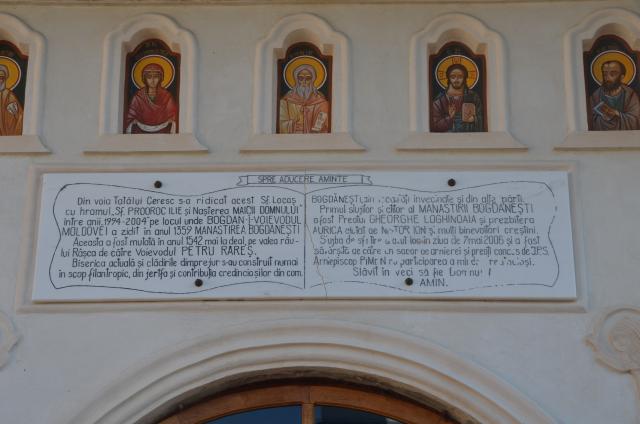 SPRE ADUCERE AMINTE
Din voia Tatălui Ceresc s-a ridicat acest Sf. Locaș
cu hramul "Sf. PROOROC ILIE și Nașterea MAICII DOMNULUI"
între anii "1994-2004" pe locul unde BOGDAN-I-VOIEVODUL
MOLDOVEI a zidit în anul 1359 MANASTIREA BOGDANEȘTI
Aceasta a fost mutată în anul 1542 mai la deal, pe valea râu-
lui Râșca de către Voievodul PETRU RAREȘ.
Biserica actuală și clădirile dimprejur s-au construit numai
în scop filantropic, din jertfa și contribuția credincioșilor din com.
BOGDĂNEȘTI, din învecinate și din alte părți.
Primul slujitor și ctitor al MANASTIRII BOGDĂNEȘTI
a fost Preotul GHEORGHE LOGHINOAIA și prezbitera
AURICA ajutat de ION și mulți binevoitori creștini.
în ziua de 7 mai 2006 și a fost
săvârșită de către un sobor de și preoți condus de Î.P.S.
Arhiepiscop PIMEN cu participarea a mii de
Slăvit în veci să fie Domnul
AMIN.